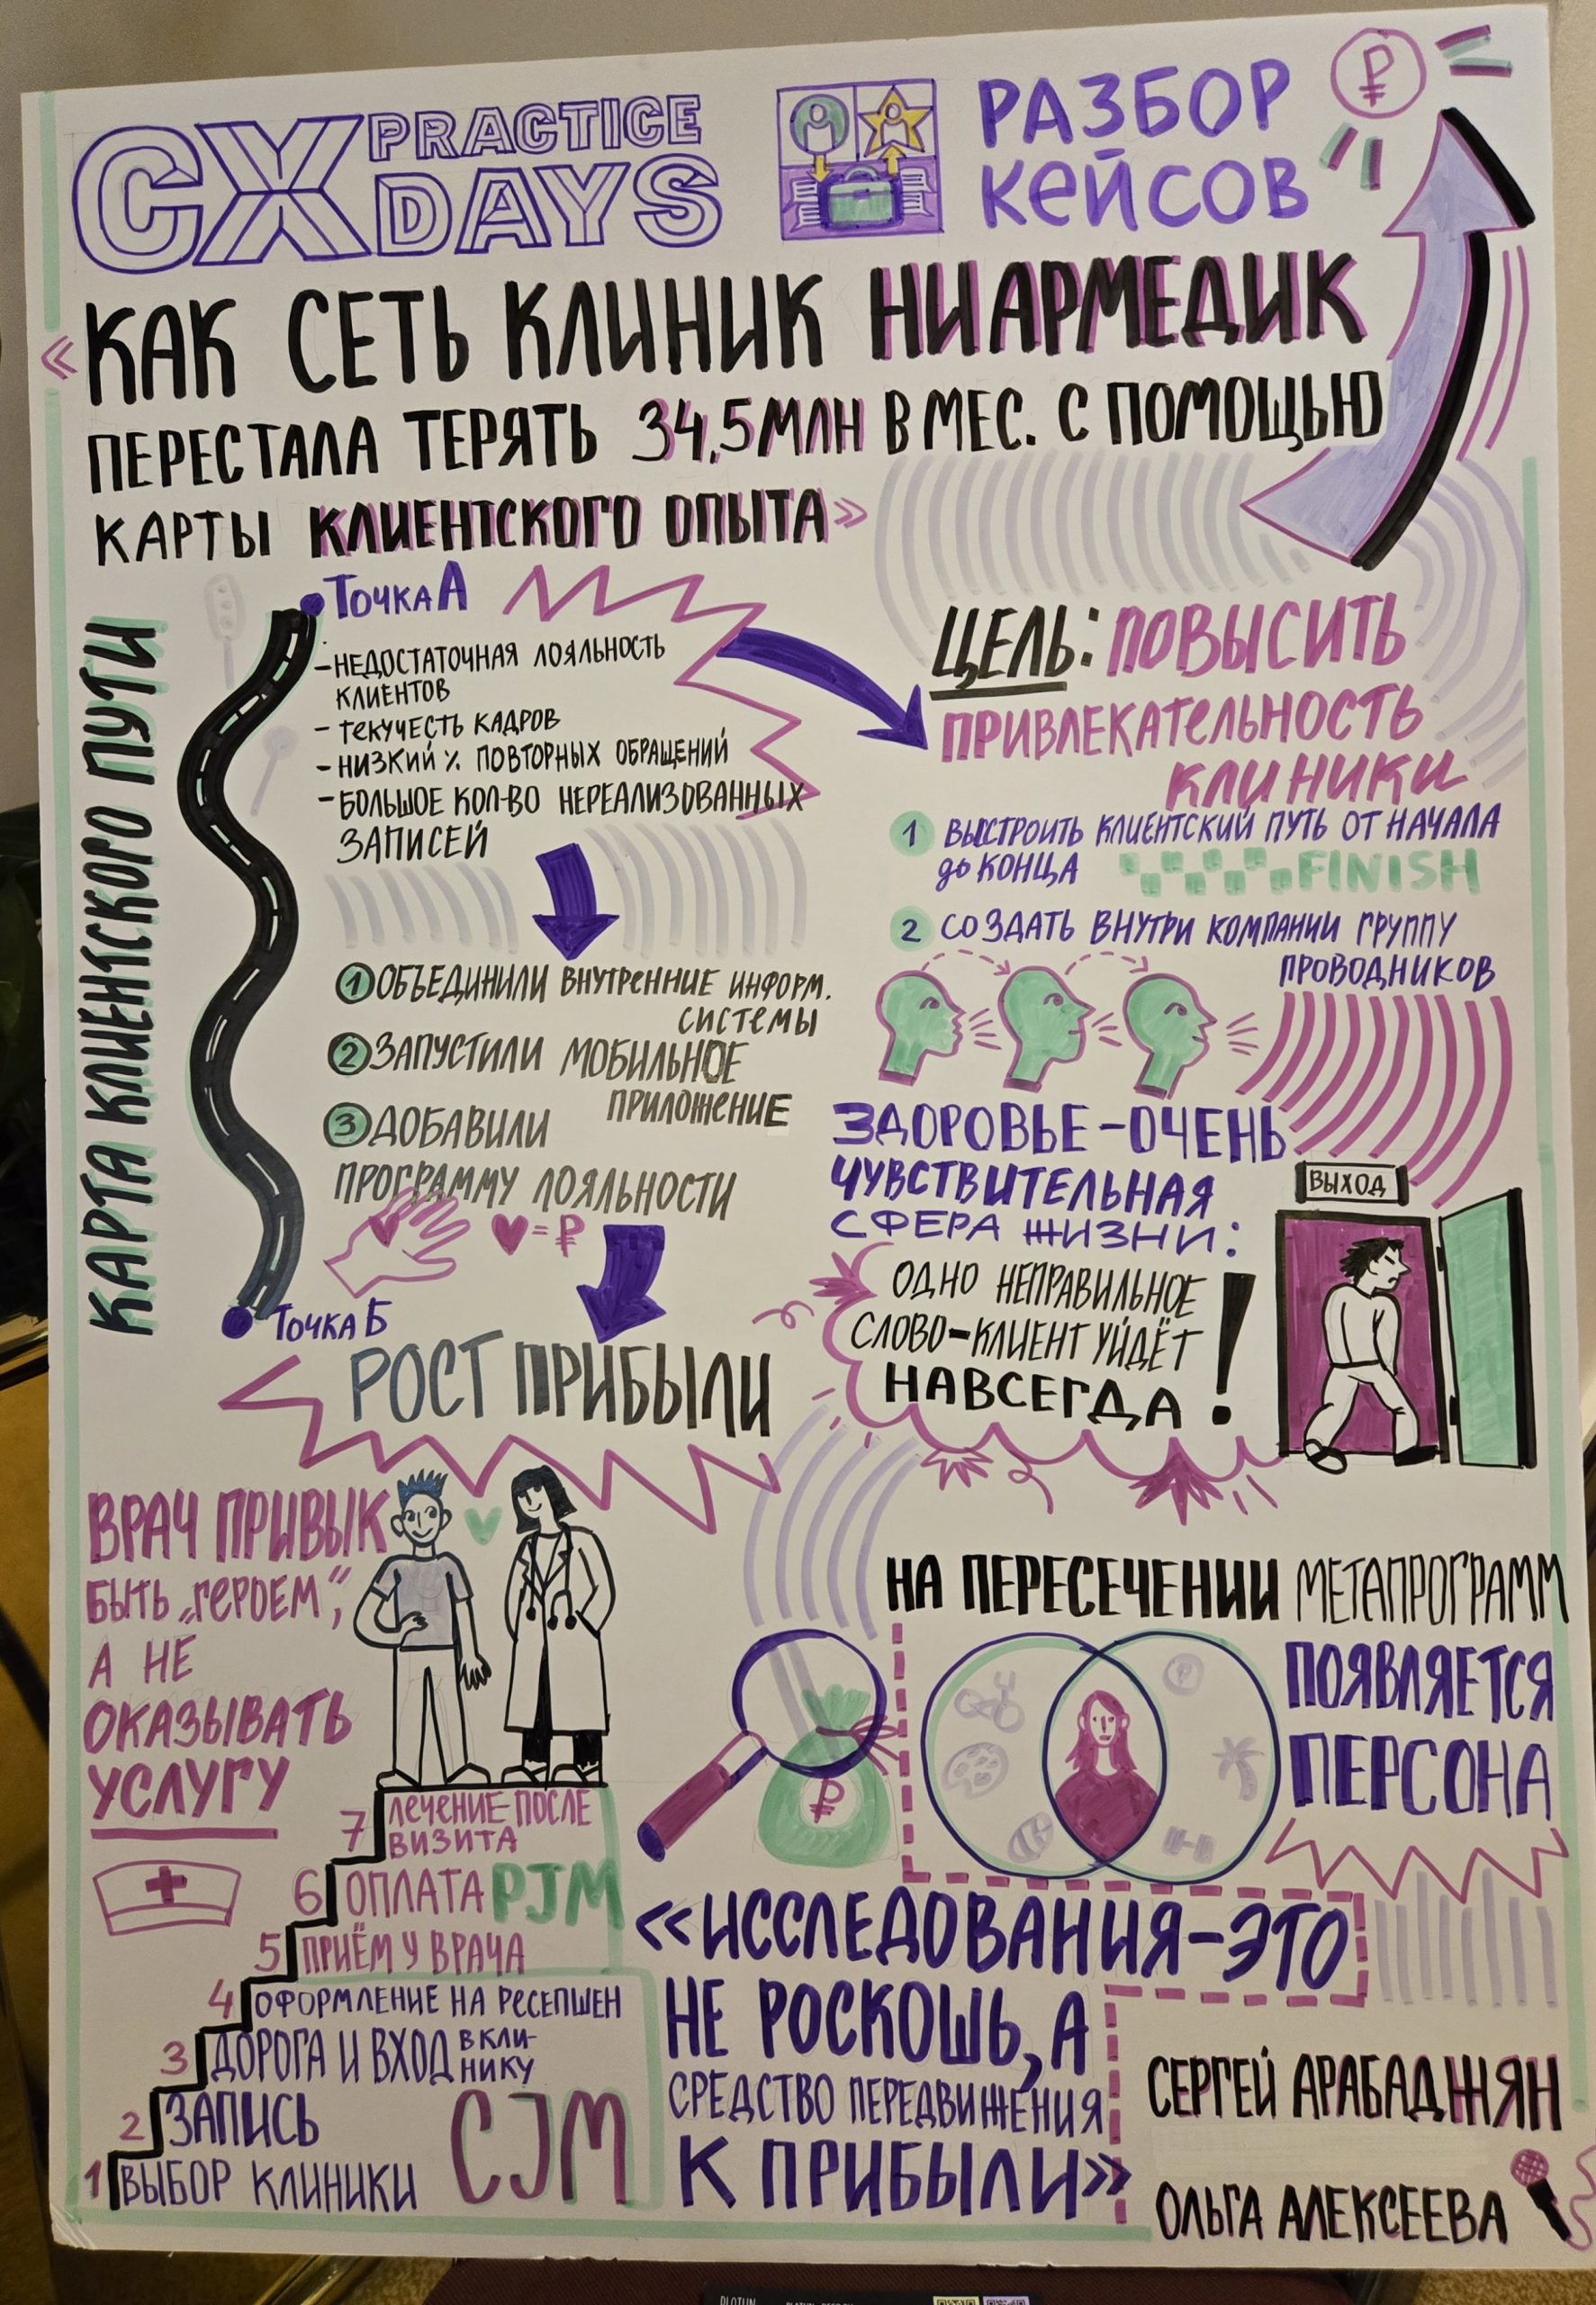 CX PRACTICE DAYS
РАЗБОР
КЕЙСОВ
₽
«КАК СЕТЬ КЛИНИК НИАРМЕДИК
ПЕРЕСТАЛА ТЕРЯТЬ 34,5 МЛН В МЕС. С ПОМОЩЬЮ
КАРТЫ КЛИЕНТСКОГО ОПЫТА»
КАРТА КЛИЕНТСКОГО ПУТИ
Точка А
- НЕДОСТАТОЧНАЯ ЛОЯЛЬНОСТЬ
КЛИЕНТОВ
- ТЕКУЧЕСТЬ КАДРОВ
- НИЗКИЙ % ПОВТОРНЫХ ОБРАЩЕНИЙ
- БОЛЬШОЕ КОЛ-ВО НЕРЕАЛИЗОВАННЫХ
ЗАПИСЕЙ
1 ОБЪЕДИНИЛИ ВНУТРЕННИЕ ИНФОРМ.
СИСТЕМЫ
2 ЗАПУСТИЛИ МОБИЛЬНОЕ
ПРИЛОЖЕНИЕ
3 ДОБАВИЛИ
ПРОГРАММУ ЛОЯЛЬНОСТИ
♥=₽
Точка Б
РОСТ ПРИБЫЛИ
ЦЕЛЬ: ПОВЫСИТЬ
ПРИВЛЕКАТЕЛЬНОСТЬ
КЛИНИКИ
1 ВЫСТРОИТЬ КЛИЕНТСКИЙ ПУТЬ ОТ НАЧАЛА
до КОНЦА FINISH
2 СОЗДАТЬ ВНУТРИ КОМПАНИИ ГРУППУ
ПРОВОДНИКОВ
ЗДОРОВЬЕ – ОЧЕНЬ
ЧУВСТВИТЕЛЬНАЯ
СФЕРА ЖИЗНИ:
ОДНО НЕПРАВИЛЬНОЕ
СЛОВО – КЛИЕНТ УЙДЁТ
НАВСЕГДА!
ВЫХОД
ВРАЧ ПРИВЫК
БЫТЬ „ГЕРОЕМ“,
А НЕ
ОКАЗЫВАТЬ
УСЛУГУ
7 ЛЕЧЕНИЕ ПОСЛЕ
ВИЗИТА
6 ОПЛАТА PJM
5 ПРИЁМ У ВРАЧА
4 ОФОРМЛЕНИЕ НА РЕСЕПШЕН
3 ДОРОГА И ВХОД В КЛИ-
НИКУ
2 ЗАПИСЬ
1 ВЫБОР КЛИНИКИ
CJM
НА ПЕРЕСЕЧЕНИИ МЕТАПРОГРАММ
ПОЯВЛЯЕТСЯ
ПЕРСОНА
₽
₽
«ИССЛЕДОВАНИЯ – ЭТО
НЕ РОСКОШЬ, А
СРЕДСТВО ПЕРЕДВИЖЕНИЯ
К ПРИБЫЛИ»
СЕРГЕЙ АРАБАДЖЯН
ОЛЬГА АЛЕКСЕЕВА